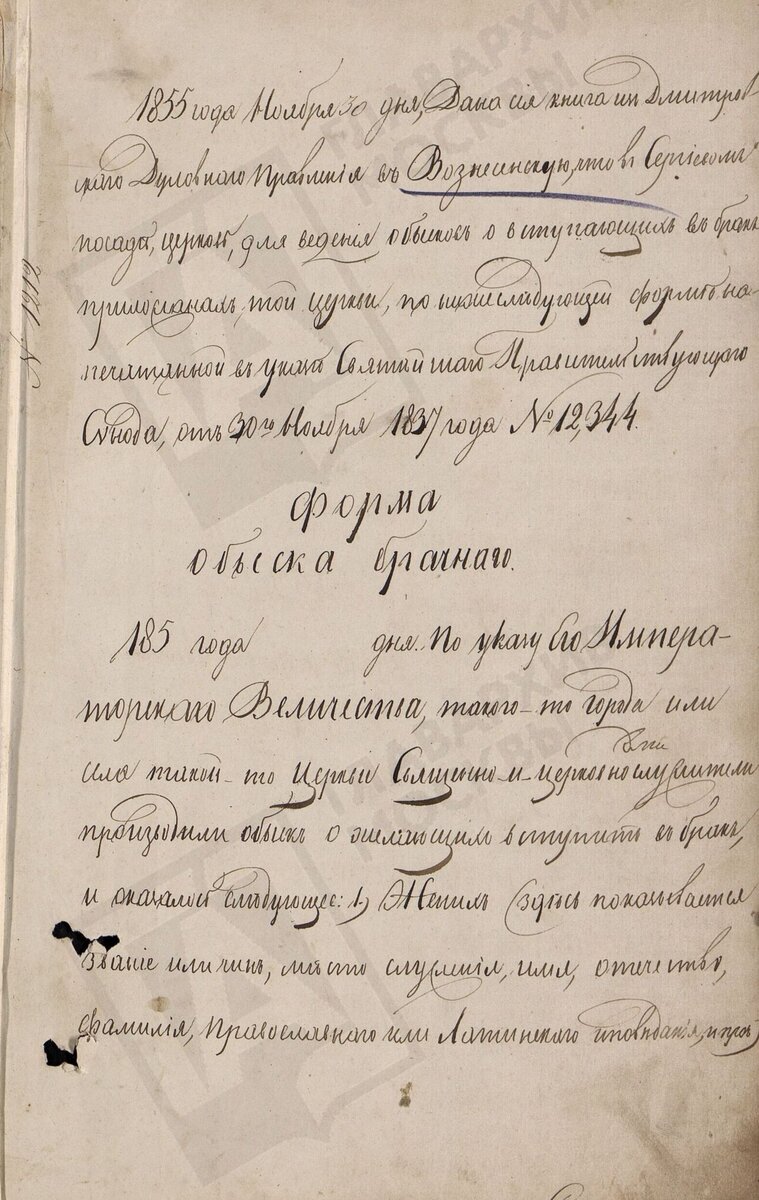 1855 года Ноября 30 дня, Дана сія книга изъ Дмитров-
скаго Духовнаго Правленія въ Вознесенскую, что въ Сергіевомъ
посадѣ, церковь, для веденія обысковъ о вступающихъ въ бракъ
прихожанахъ той церкви, по нижеслѣдующей формѣ на-
печатанной въ указѣ Святѣйшаго Правительствующаго
Сѵнода, отъ 30го Ноября 1837 года № 12,344.
Форма
обыска брачнаго.
185 года дня. По указу Его Импера-
торскаго Величества, такого-то города или
села такой-то Церкви Священно-и-церковнослужители
производили обыскъ о желающихъ вступить въ бракъ,
и оказалось слѣдующее: 1.) Женихъ (здѣсь показывается
званіе или чинъ, мѣсто служенія, имя, отчество,
фамилія, Православнаго или Латинскаго исповѣданія, и проч)
№ 1212
ГЛАВАРХИВ
МОСКВЫ